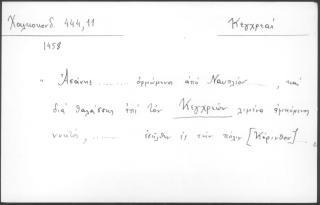 Χαλκοκονδ. 444,11 Κεγχρεαί
1458
" Ἀσάνης ......... ὁρμώμενος ἀπὸ Ναυπλίου ......, καὶ
διὰ θαλάσσης ἐπὶ τὸν Κεγχρεῶν λιμένα
νυκτός, ........ ἐσῆλθεν ἐς τὴν πόλιν [Κόρινθον] ....